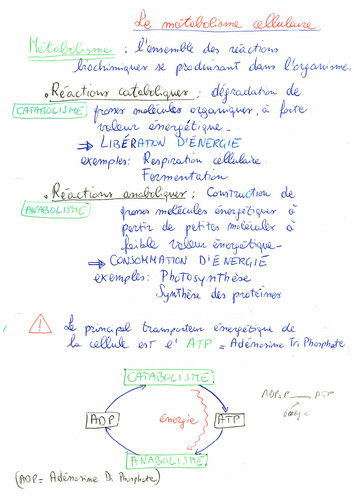 Le métabolisme cellulaire
Métabolisme : l'ensemble des réactions
biochimiques se produisant dans l'organisme.
• Réactions cataboliques : dégradation de
CATABOLISME grosses molécules organiques, à forte
valeur énergétique.
⇒ LIBÉRATION D'ÉNERGIE
exemples: Respiration cellulaire
Fermentation
• Réactions anaboliques : Construction de
ANABOLISME grosses molécules énergétiques à
partir de petites molécules à
faible valeur énergétique.
⇒ CONSOMMATION D'ÉNERGIE
exemples: Photosynthèse
Synthèse des protéines
! Le principal transporteur énergétique de
la cellule est l'ATP = Adénosine Tri Phosphate
CATABOLISME
ADP+P → ATP
énergie
ADP énergie ATP
ANABOLISME
(ADP = Adénosine Di Phosphate)